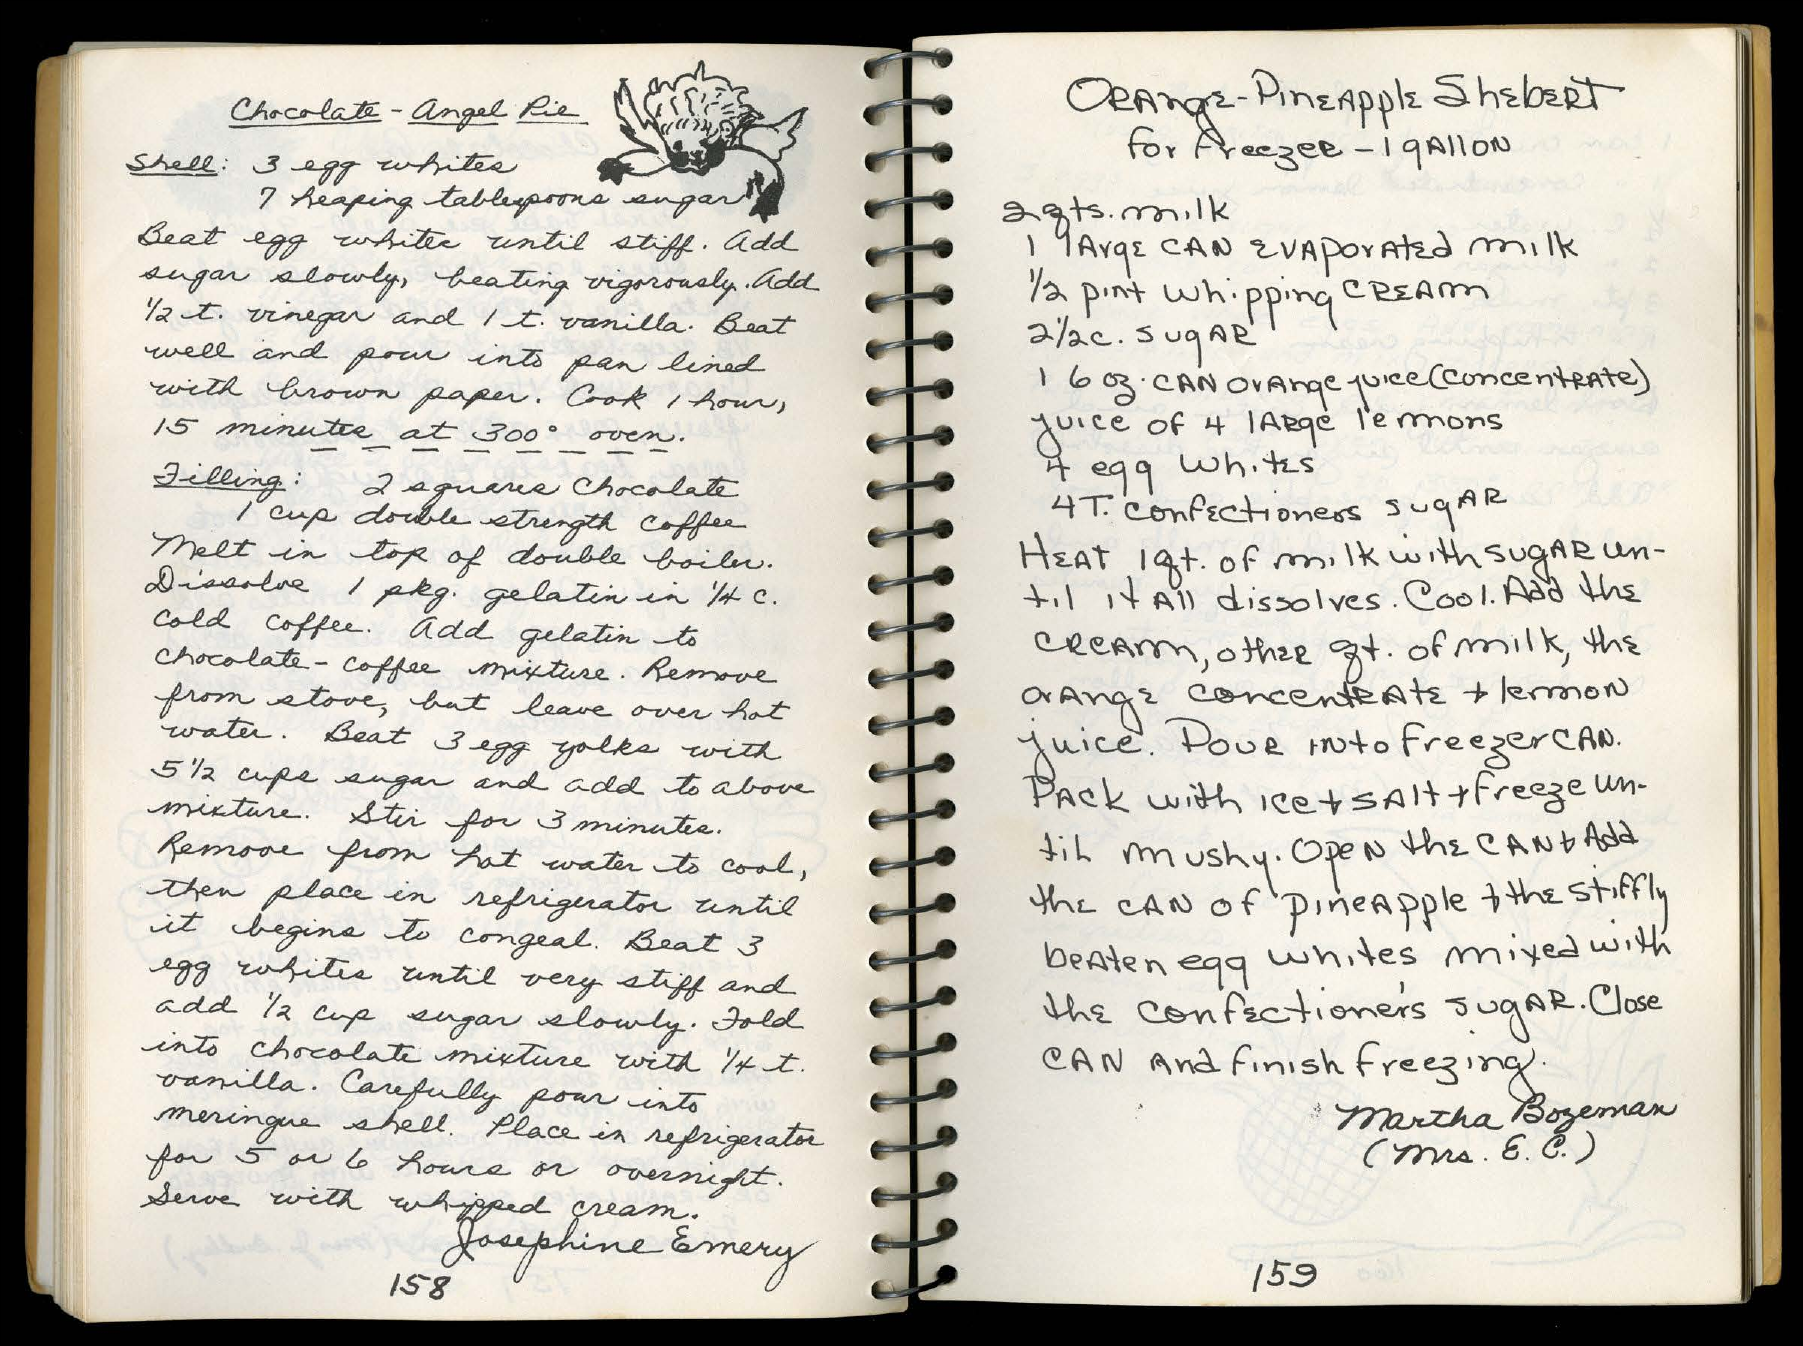 Chocolate - Angel Pie
Shell: 3 egg whites
7 heaping tablespoons sugar
Beat egg whites until stiff. Add
sugar slowly, beating vigorously. Add
1/2 t. vinegar and 1 t. vanilla. Beat
well and pour into pan lined
with brown paper. Cook 1 hour,
15 minutes at 300° oven.
Filling: 2 squares Chocolate
1 cup double strength coffee
Melt in top of double boiler.
Dissolve 1 pkg. gelatin in 1/4 c.
cold coffee. Add gelatin to
chocolate - coffee mixture. Remove
from stove, but leave over hot
water. Beat 3 egg yolks with
5 1/2 cups sugar and add to above
mixture. Stir for 3 minutes.
Remove from hot water to cool,
then place in refrigerator until
it begins to congeal. Beat 3
egg whites until very stiff and
add 1/2 cup sugar slowly. Fold
into chocolate mixture with 1/4 t.
vanilla. Carefully pour into
meringue shell. Place in refrigerator
for 5 or 6 hours or overnight.
Serve with whipped cream.
Josephine Emery
158
Orange-Pineapple Shebert
for freezer - 1 gallon
2 qts. milk
1 large can evaporated milk
1/2 pint whipping cream
2 1/2 c. sugar
1 6 oz. can orange juice (concentrate)
juice of 4 large lemons
4 egg whites
4 T. confectioners sugar
Heat 1 qt. of milk with sugar un-
til it all dissolves. Cool. Add the
cream, other qt. of milk, the
orange concentrate + lemon
juice. Pour into freezer can.
Pack with ice + salt + freeze un-
til mushy. Open the can + Add
the can of pineapple + the stiffly
beaten egg whites mixed with
the confectioner's sugar. Close
can and finish freezing.
Martha Bozeman
(Mrs. E. C.)
159